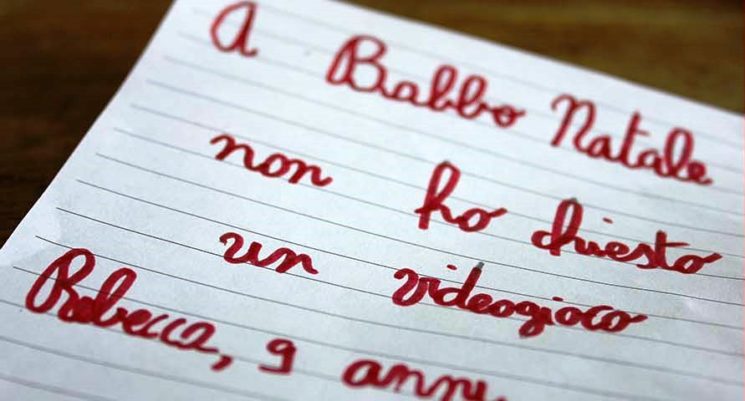 A Babbo Natale
non ho chiesto
un videogioco
Rebecca, 9 anni